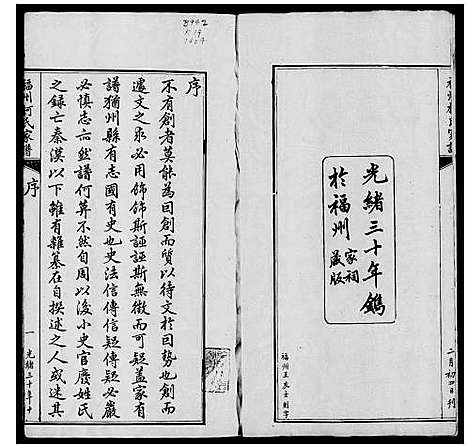 光緒三十年鐫
於福州
家祠
藏版
二月初四日刊
福州王友士刻字
8942
序
不有創者莫能為因創而質以待文於因勢也創而
遽文之必用飾飾斯誣誣斯無徵而可疑蓋家有
譜猶州縣有志國有史也史法信傳信疑傳疑必嚴
必慎志亦然譜何莫不然自周以後小史官廢姓氏
之錄亡秦漢以下雖有雜纂在自撰述之人或述其
福州何氏家譜
序
一
光緒三十年